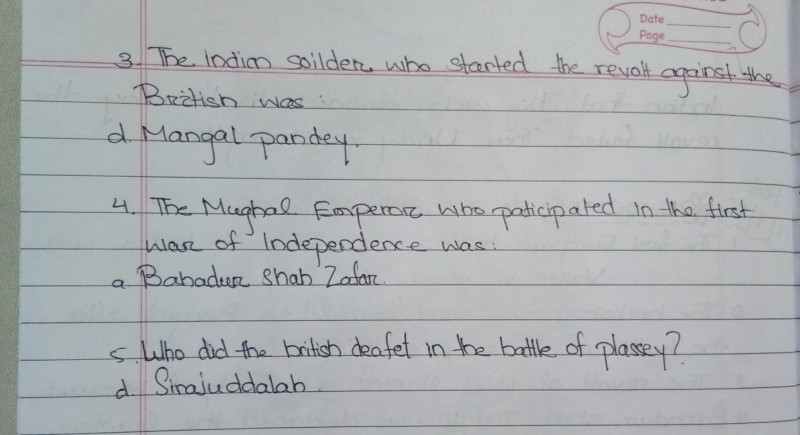 Date
Page
3. The Indian soilder who started the revolt against the
British was :
d. Mangal pandey.
4. The Mughal Emperor who paticipated in the first
war of Independence was:
a. Bahadur Shah Zafar.
5. Who did the british deafet in the battle of plassey?
d. Sirajuddalah.